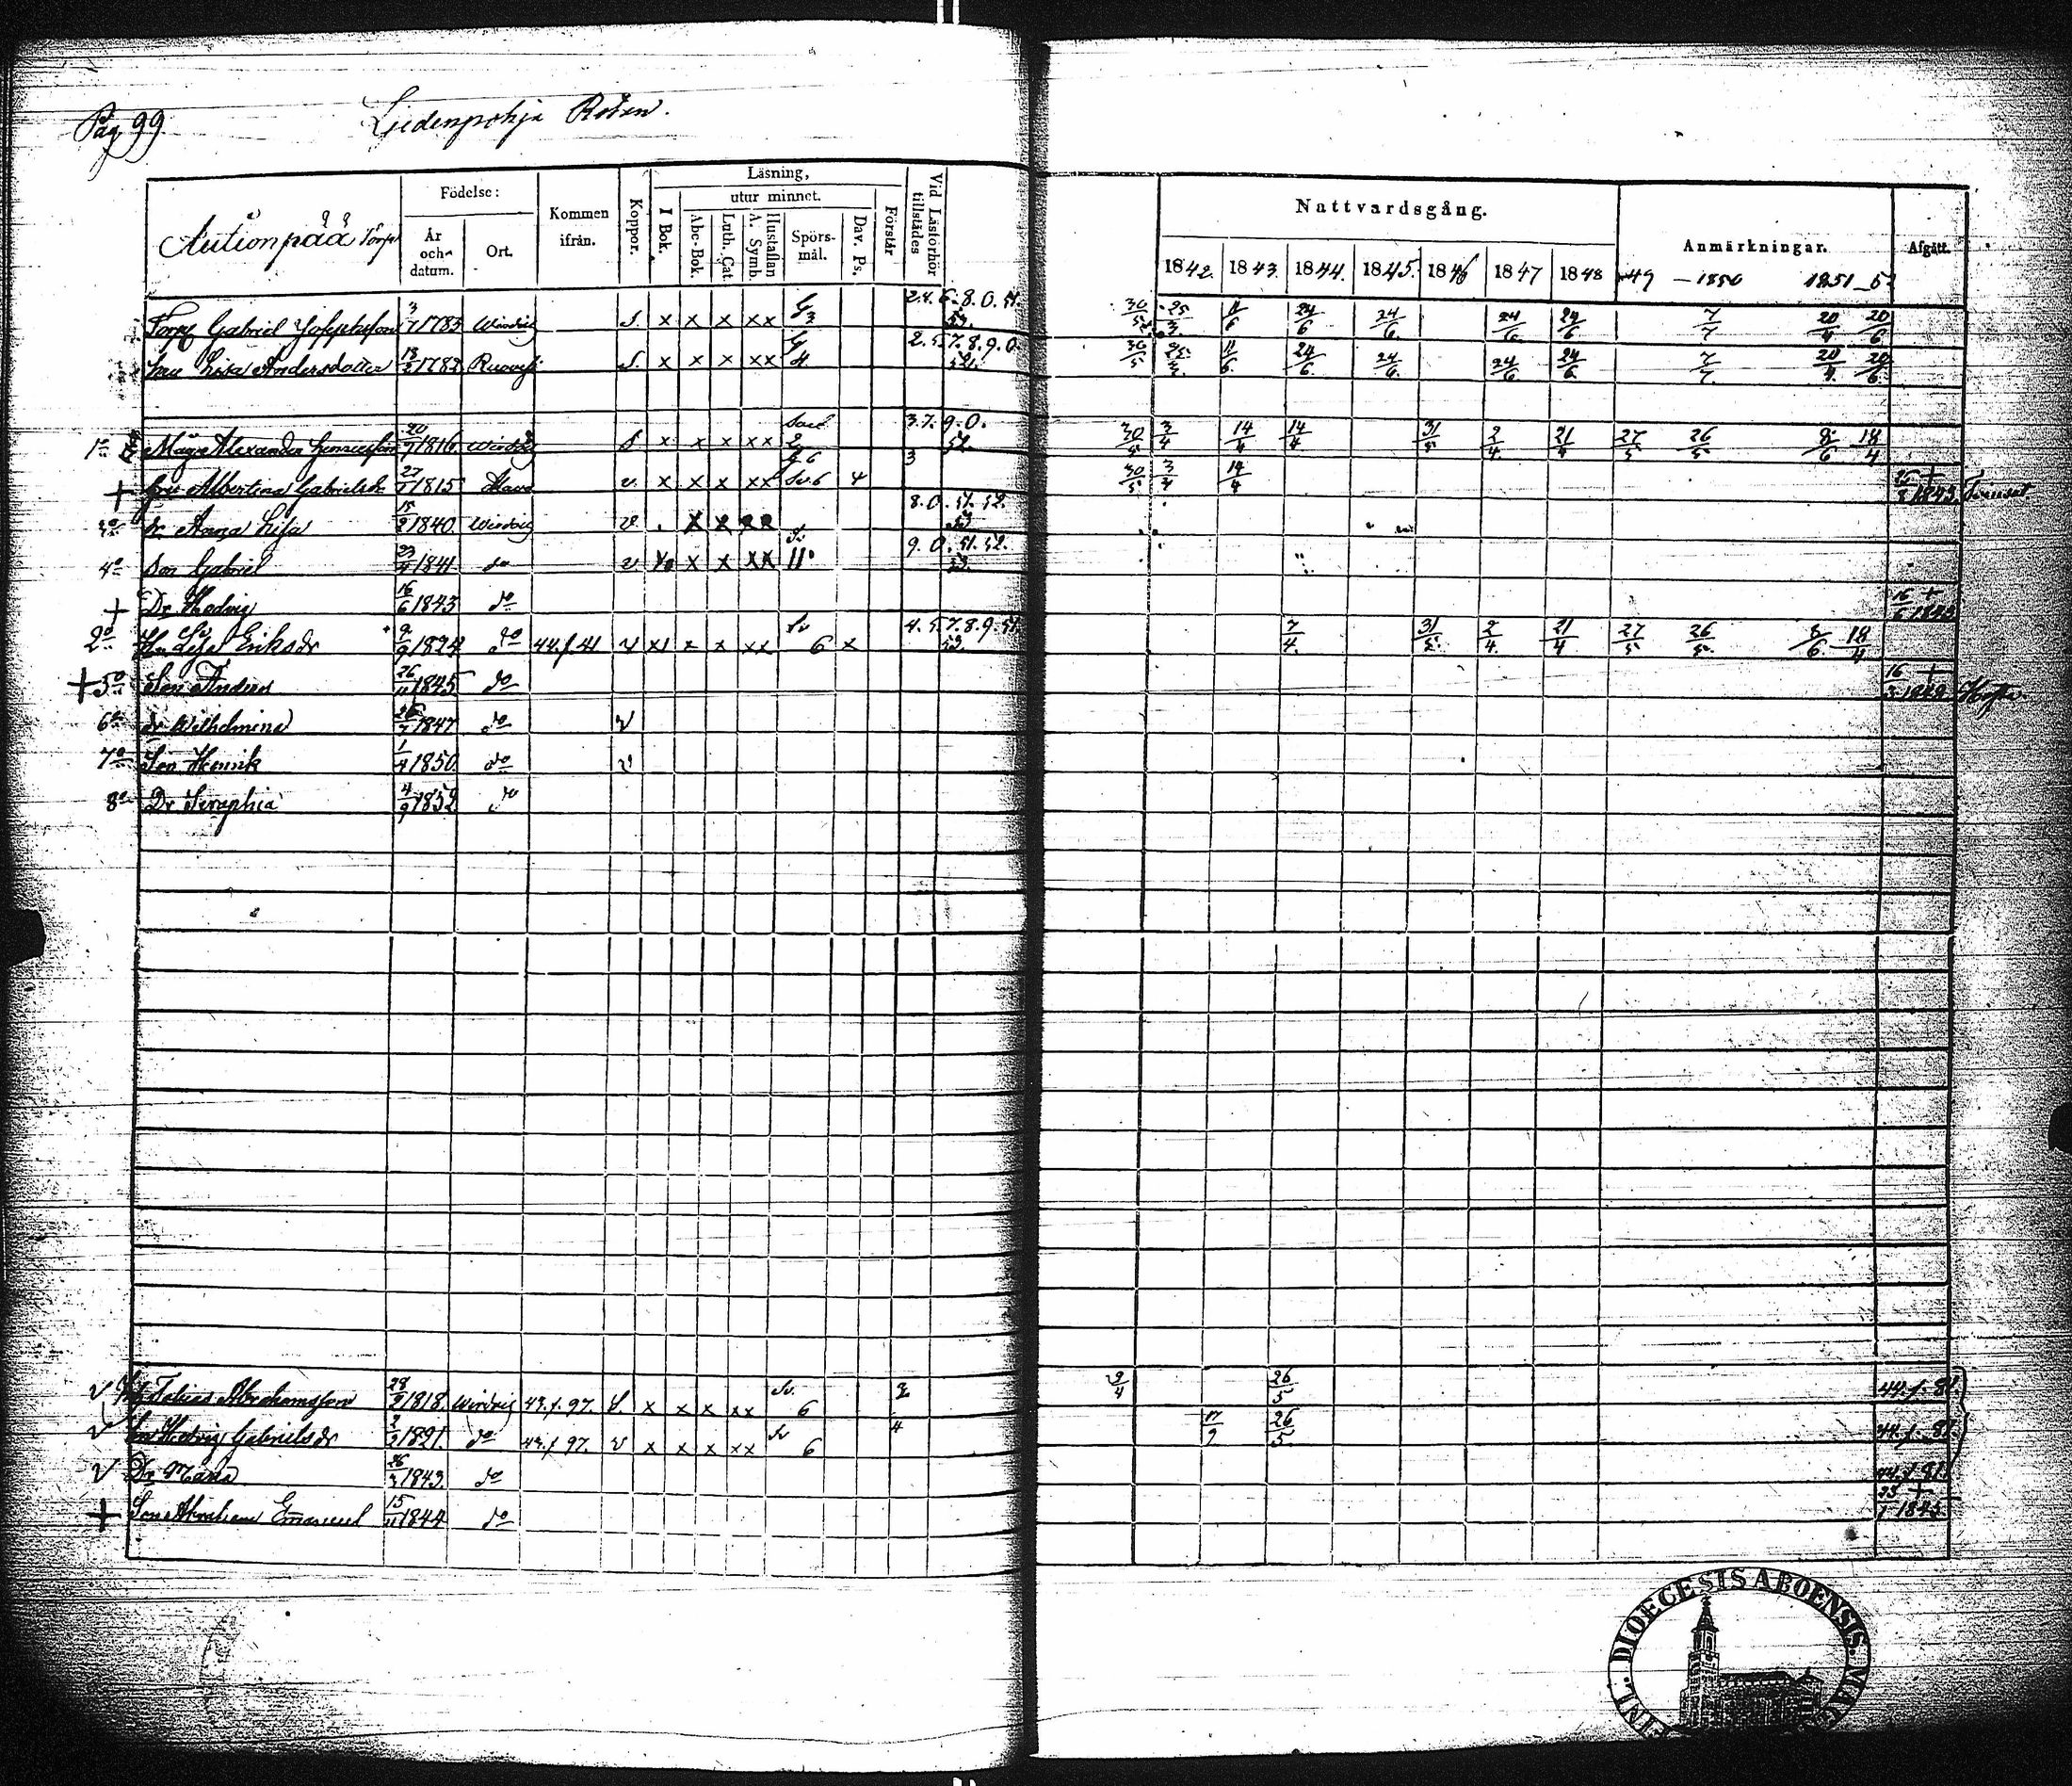 Pag 99
Liedenpohja Roten.
Autionpää Torp
Födelse:
År och datum.
Ort.
Kommen ifrån.
Koppor.
Läsning,
I Bok.
utur minnet.
Abc-Bok.
Luth. Cat.
A. Symb.
Hustaflan
Spörsmål.
Dav. Ps.
Förstår
Vid Läsförhör tillstädes
Nattvardsgång.
1842. 1843. 1844. 1845. 1846 1847 1848
Anmärkningar.
49 — 1850 1851_5
Afgått.
Torp Gabriel 3/7 1785 Wirdoi S. x x x xx G 3 2.4.6.8.0.51. 53. 30/5 25/3 11/6 24/6 24/6 24/6 24/6 7/7 20/4 20/6
Hu Lisa Andersdotter 13/3 1782 Ruovesi S. x x x xx G 4 2.5.7.8.9.0. 52. 30/5 25/3 11/6 24/6 24/6 24/6 24/6 7/7 20/4 20/6
1o Måg Alexander 20/7 1816 Wirdoi S x x x xx 3.7.9.0. 52. 30/5 3/4 14/4 14/4 31/5 2/4 21/4 27/5 26/5 8/6 18/4
+ Albertina Gabrielsdr 27/7 1815 Alavo v. x x x xx Sv. 6 4 3 30/5 3/4 14/4 1843
3o dr Anna Lisa 15/2 1840 Wirdoi v. x x x x 8.0.51.52. 53
4o Son Gabriel 23/4 1841 do v x x x xx 11 9.0.51.52. 53
+ Dr Hedvig 16/6 1843 do 16/6 + 1843
2o Hu Lisa Eriksdr 9/9 1824 do 44.f.41 v x x x xx Sv 6 x 4.5.7.8.9.51 53. 7/4. 31/5 2/4 21/4 27/5 26/5 8/6 18/4
+ 5o Son Anders 26/11 1845 do 16/3 + 1848
6o dr Wilhelmina 26/7 1847 do v
7o Son Henrik 1/4 1850 do v
8o Dr Seraphia 4/9 1852 do
v Tobias Abrahamsson 28/9 1818 Wirdoi 43.f.97. S x x x xx Sv. 6 2 9/4 26/5 44.f.81.
v Hu Hedvig Gabrielsdr 2/2 1821. do 43.f.97. v x x x xx Sv 6 4 17/9 26/5 44.f.81.
v Dr Maria 26/3 1843. do 44.f.81.
+ Son Abraham Emanuel 15/11 1844 do 23/1 + 1845
FINL. DIOECESIS ABOENSIS. MAG